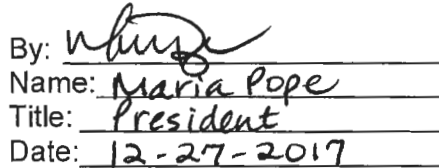 By:
Name: Maria Pope
Title: President
Date: 12-27-2017